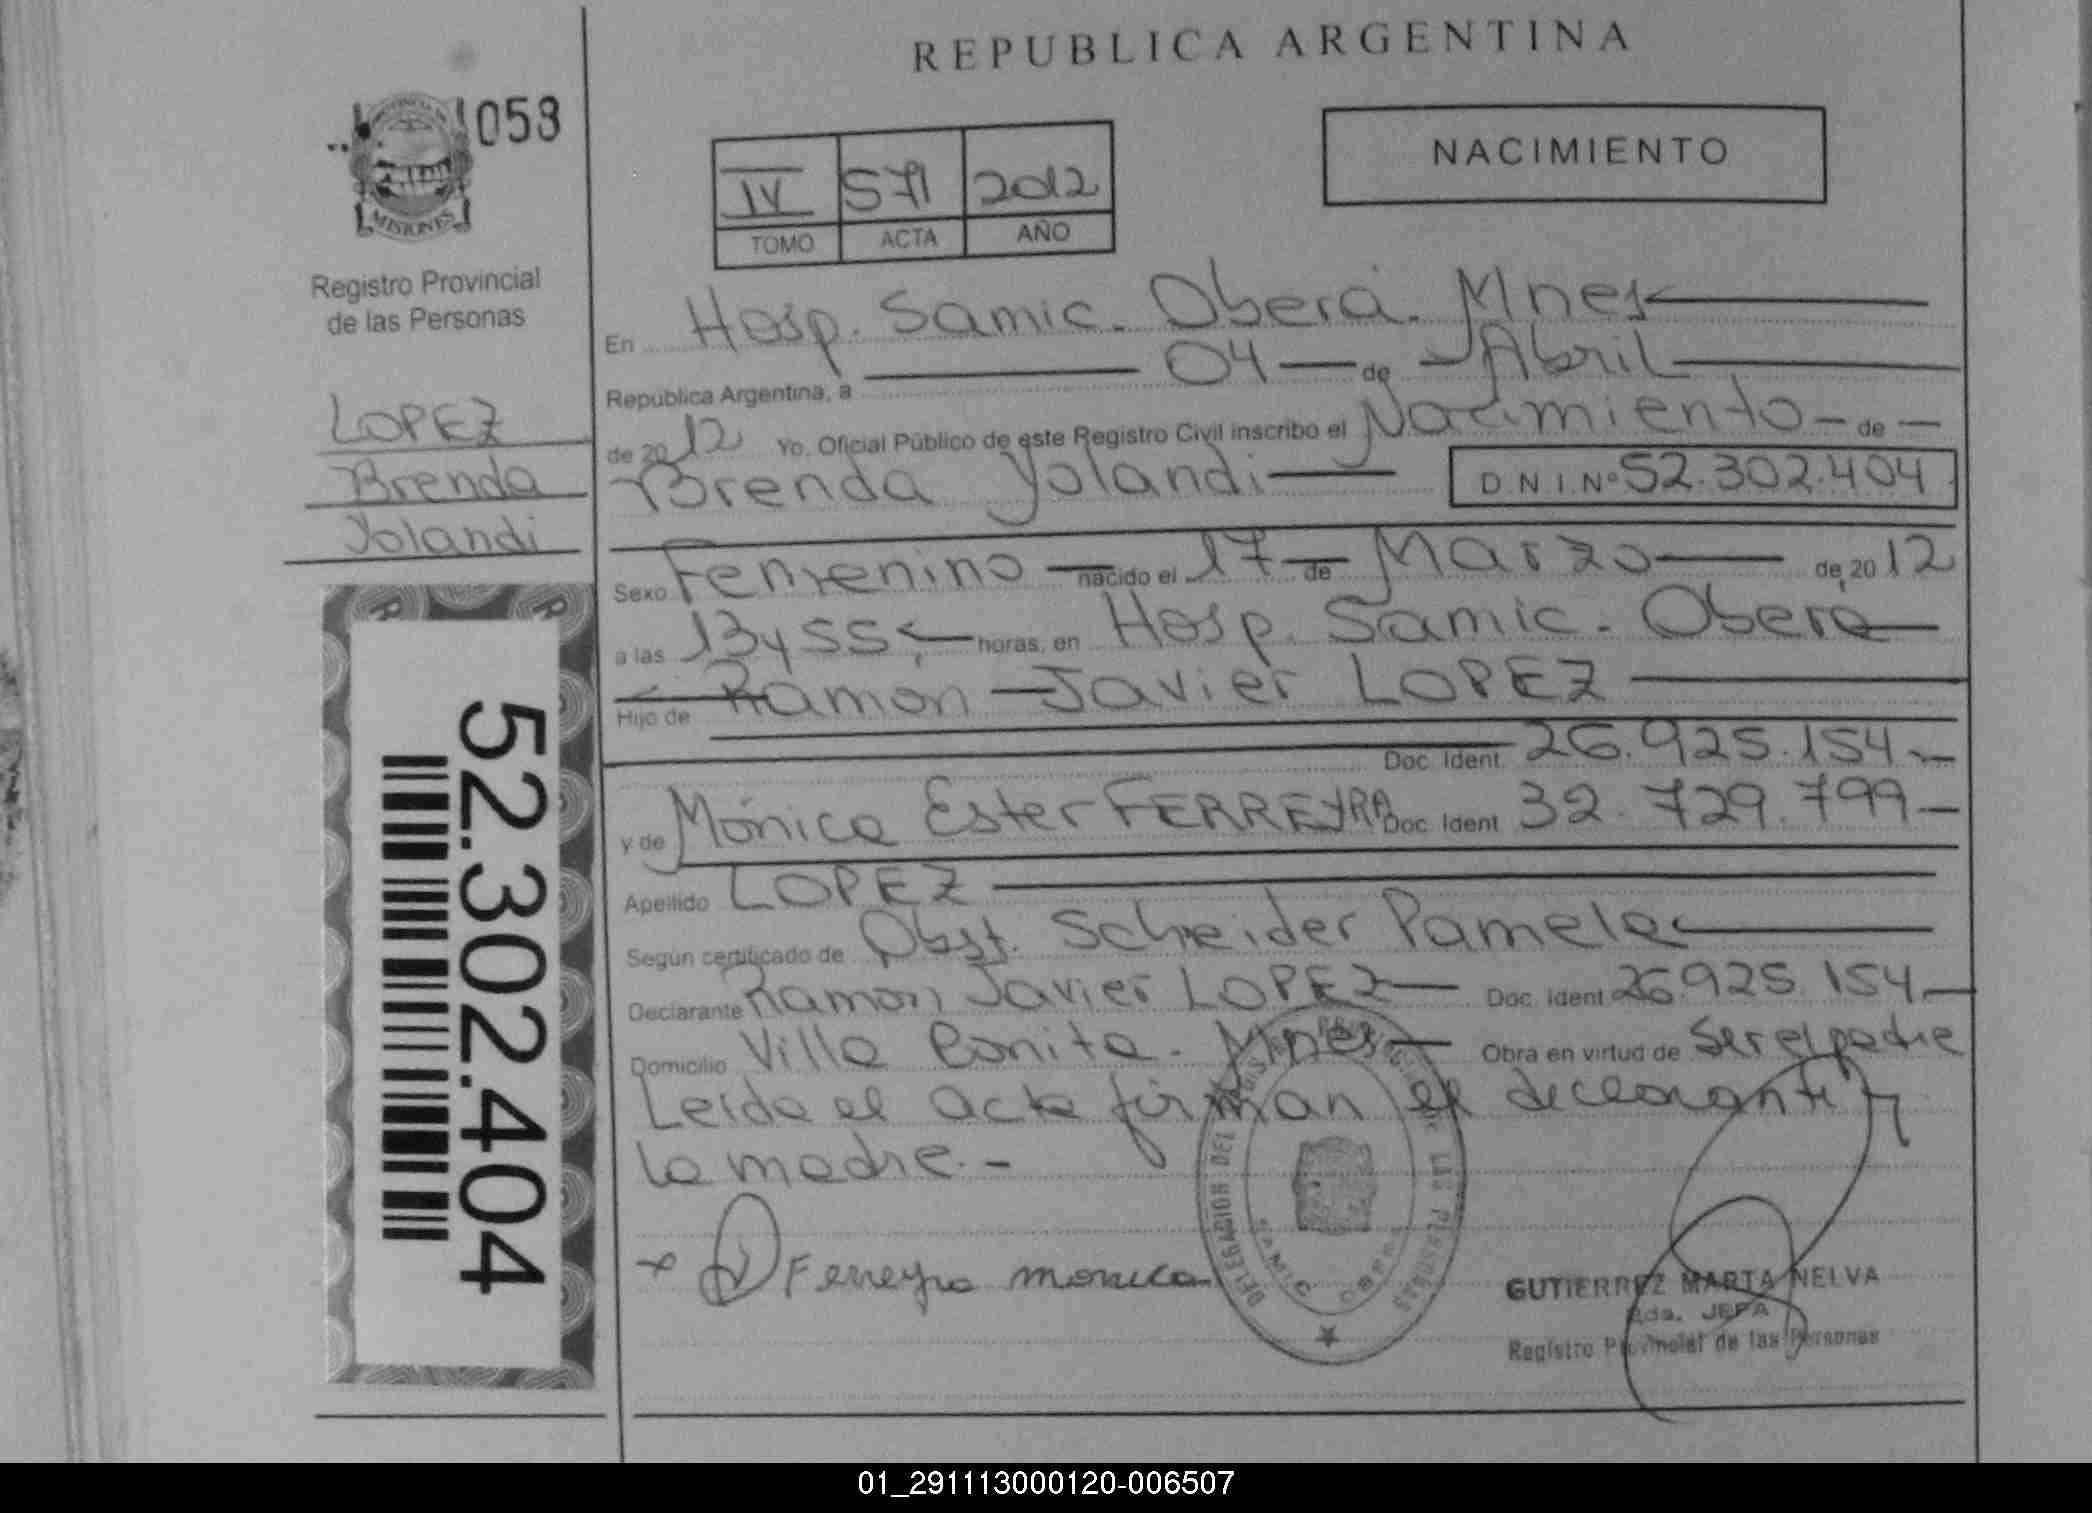 REPUBLICA ARGENTINA
058
MISIONES
Registro Provincial
de las Personas
LOPEZ
Brenda
Yolandi
52.302.404
NACIMIENTO
IV 571 2012
TOMO ACTA AÑO
En Hosp. Samic. Oberá. Mnes
Republica Argentina, a 04 de Abril
de 2012 Yo, Oficial Público de este Registro Civil inscribo el Nacimiento de
Brenda Yolandi D.N.I.Nº 52.302.404
Sexo Femenino nacido el 17 de Marzo de 2012
a las 13y55 horas, en Hosp. Samic. Oberá
Hijo de Ramon Javier LOPEZ
Doc. Ident. 26.925.154
y de Mónica Ester FERREYRA Doc. Ident 32.729.799
Apellido LOPEZ
Según certificado de Obst. Scheider Pamela
Declarante Ramon Javier LOPEZ Doc. Ident 26.925.154
Domicilio Villa Bonita. Mnes Obra en virtud de Ser el padre
Leida el acta firman el declarante y
la madre.-
Ferreyra monica
DELEGACION DEL DE LAS PERSONAS
GUTIERREZ MARTA NELVA
JEFA
Registro Provincial de las Personas
01_291113000120-006507